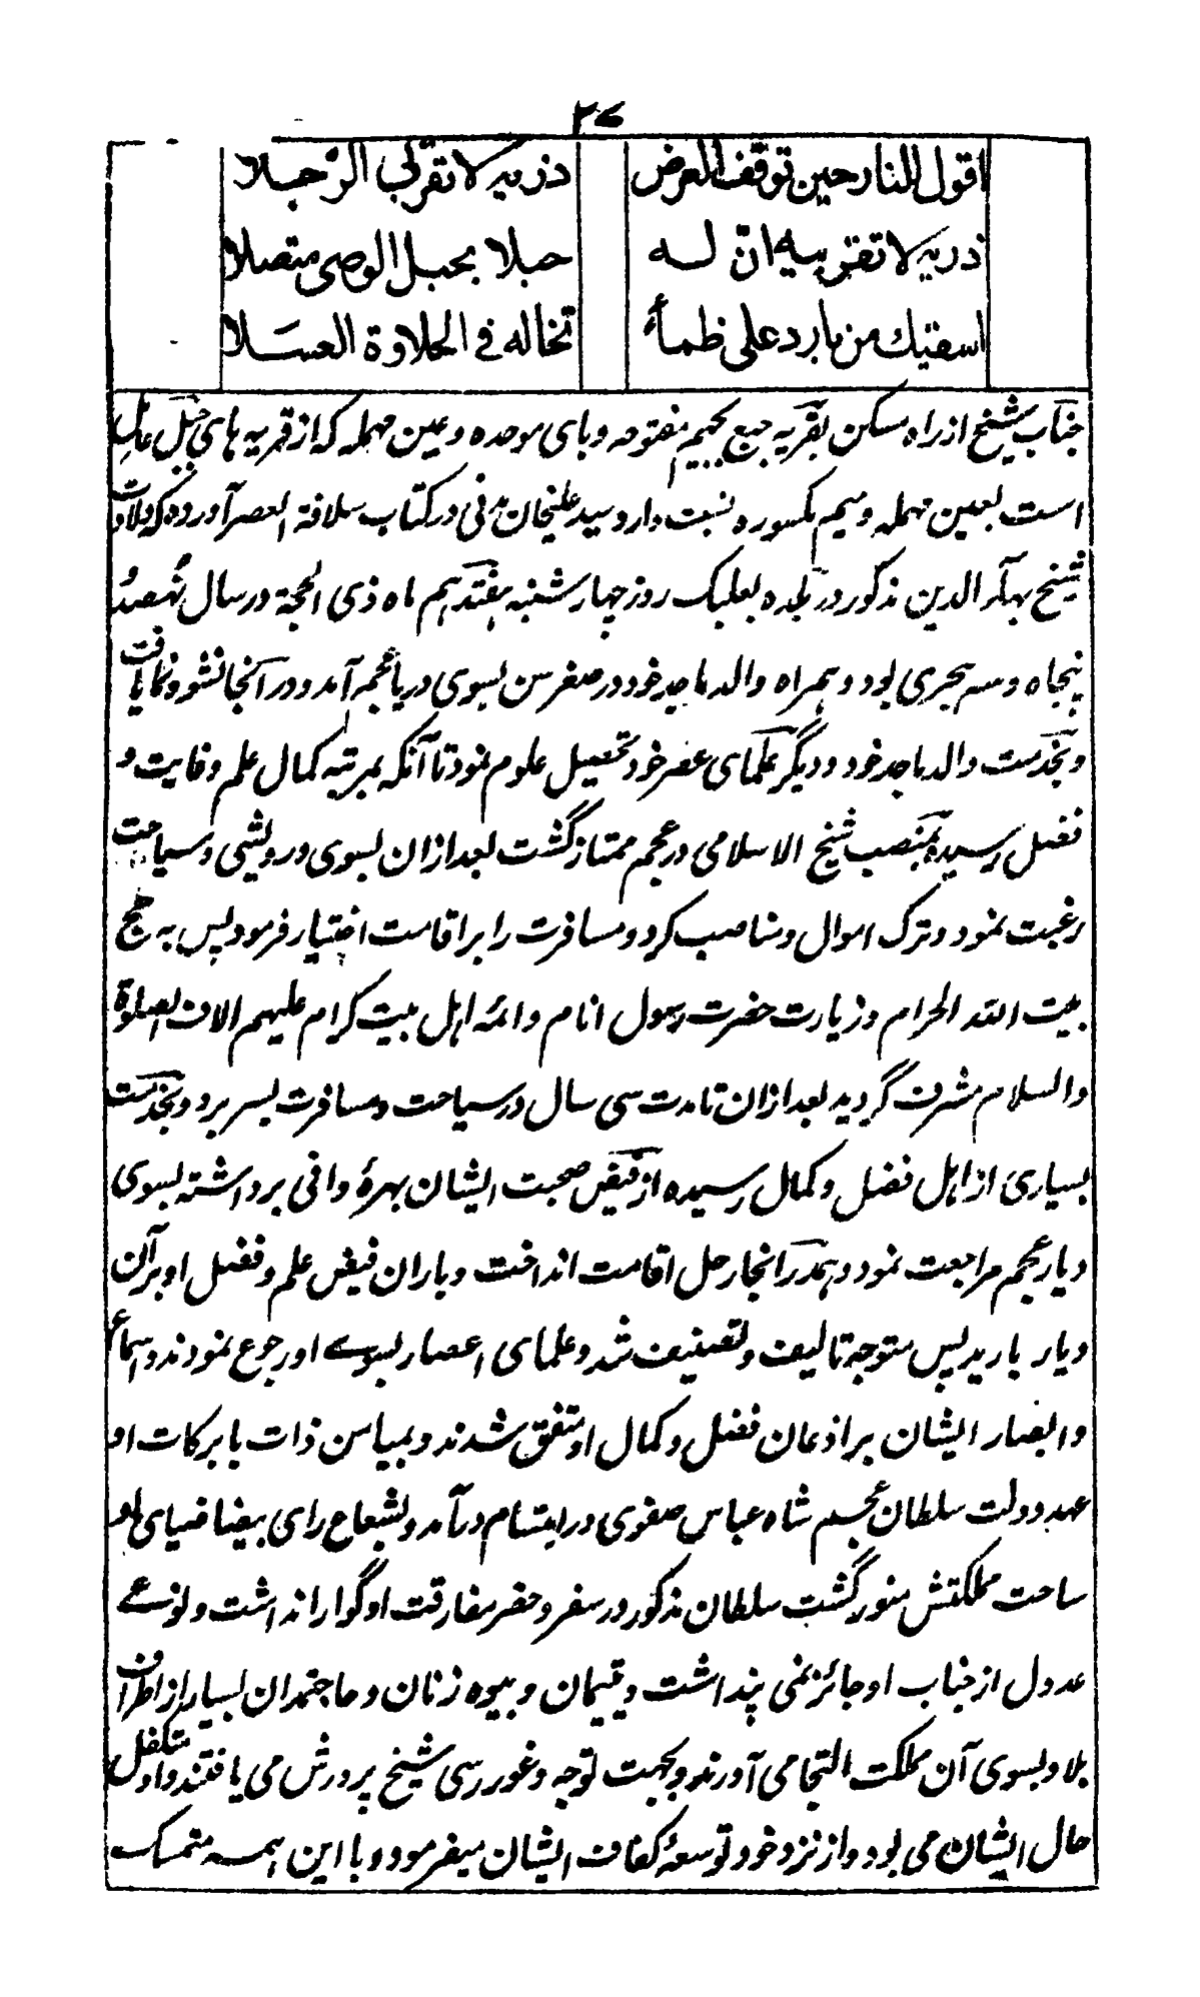 ۲۶
اقول للنار حین توقف للعرض ذریه لا تقربی الرجلا
ذریه لا تقربیه ان له حبلا بحبل الوصی متصلا
اسقیك من بارد علی ظمأ تخاله فی الحلاوة العسلا
جناب شیخ از راه مسکن بقریه جبع بجیم مفتوحه و بای موحده و عین مهمله که از قریه های جبل عامل
است بعین مهمله و میم مکسوره نسبت دارد سید علیخان مدنی در کتاب سلافة العصر آورده که ولادت
شیخ بهاء الدین مذکور در بلده بعلبک روز چهار شنبه هفتدهم ماه ذی الحجة در سال نهصد
پنجاه و سه هجری بود و همراه والد ماجد خود در صغر سن بسوی دیار عجم آمد و در آنجا نشو و نما یافت
و بخدمت والد ماجد خود و دیگر علمای عصر خود تحصیل علوم نمود تا آنکه بمرتبه کمال علم و غایت و
فضل رسیده بمنصب شیخ الاسلامی در عجم ممتاز گشت بعد ازان بسوی درویشی و سیاحت
رغبت نمود و ترک اموال و مناصب کرد و مسافرت را بر اقامت اختیار فرمود پس به حج
بیت الله الحرام و زیارت حضرت رسول انام و ائمه اهل بیت کرام علیهم الاف الصلوة
والسلام مشرف گردید بعد ازان تا مدت سی سال در سیاحت و مسافرت بسر برد و بخدمت
بسیاری از اهل فضل و کمال رسیده از فیض صحبت ایشان بهرهٔ وافی برداشته بسوی
دیار عجم مراجعت نمود و همدر انجا رحل اقامت انداخت و باران فیض علم و فضل او بر آن
دیار بارید پس متوجه تالیف و تصنیف شد و علمای اعصار بسوے او رجوع نمودند و اسماع
و ابصار ایشان بر اذعان فضل و کمال او متفق شدند و بمیامن ذات بابرکات او
عهد دولت سلطان عجم شاه عباس صفوی در ابتسام درآمد و بشعاع رای بیضا ضیای او
ساحت مملکتش منور گشت سلطان مذکور در سفر و حضر مفارقت او گوارا نداشت و نوعے
عدول از جناب او جائز نمی پنداشت و یتیمان و بیوه زنان و حاجتمندان بسیار از اطراف
بلاد بسوی آن مملکت التجا می آوردند و بجهت توجه و غور رسی شیخ پرورش می یافتند و او متکفل
حال ایشان می بود و از نزد خود توسعهٔ کفاف ایشان میفرمود و با این همه متمسک